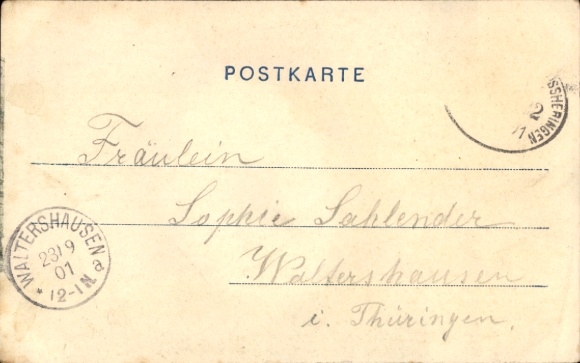 POSTKARTE
SSHERINGEN
2
Fräulein
Sophie Sahlender
Waltershausen
i. Thüringen.
* WALTERSHAUSEN e
23/9
01
12-1N